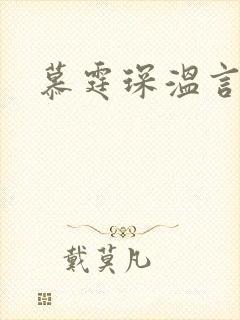 慕霆琛温言
戴莫凡